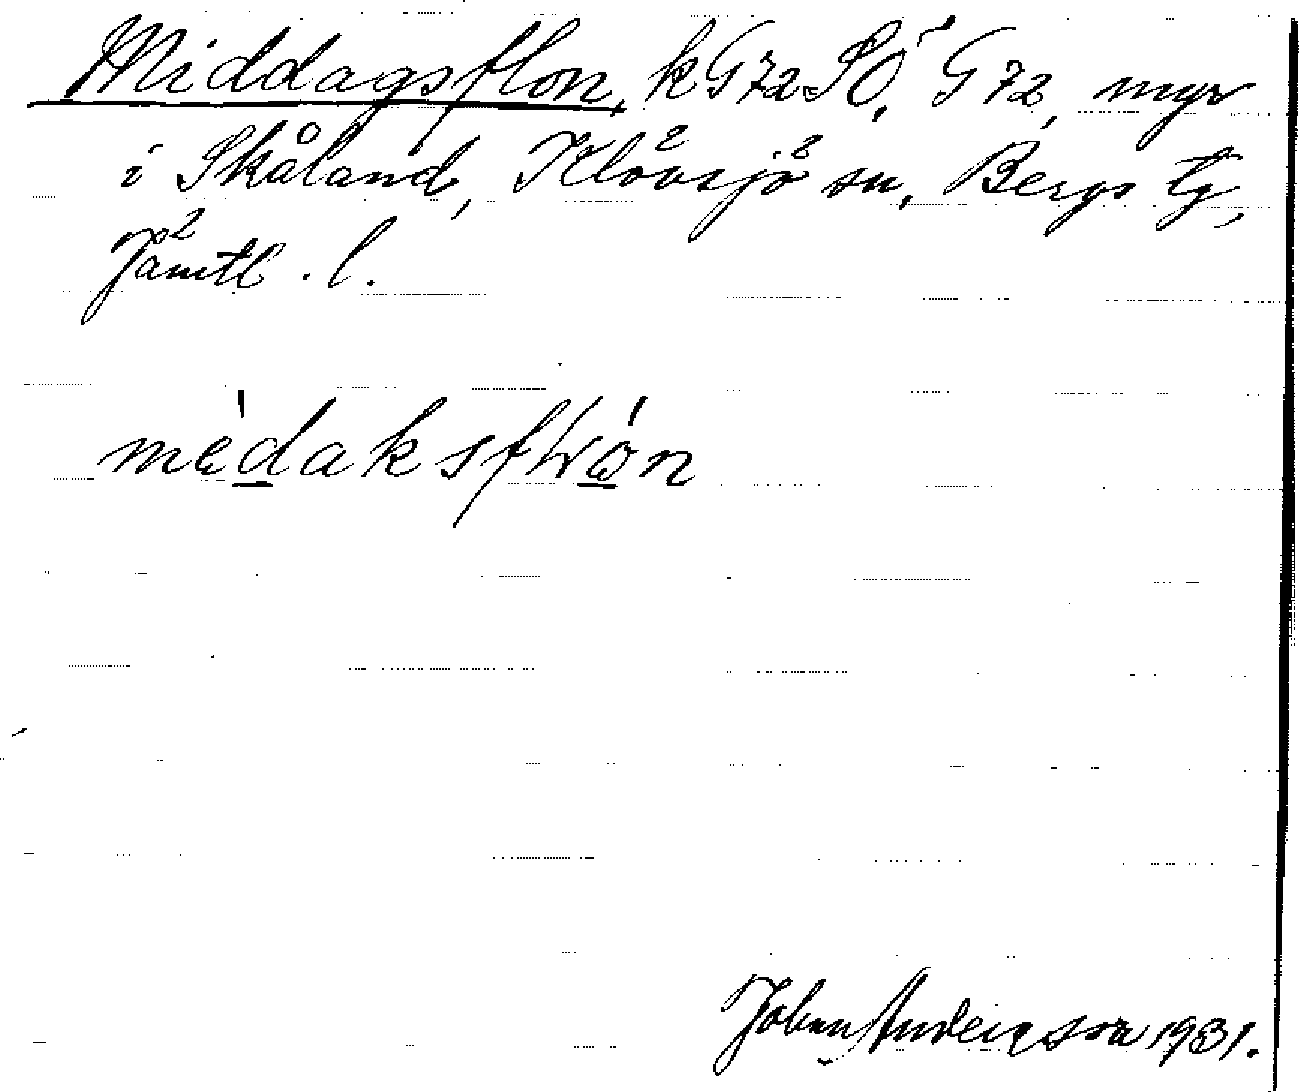 Middagsflon, k G72 SÖ, G 72, myr
i Skåland, Klövsjö sn, Bergs tg,
Jämtl. l.
mèdaksflωn
Johan Andersson 1931.